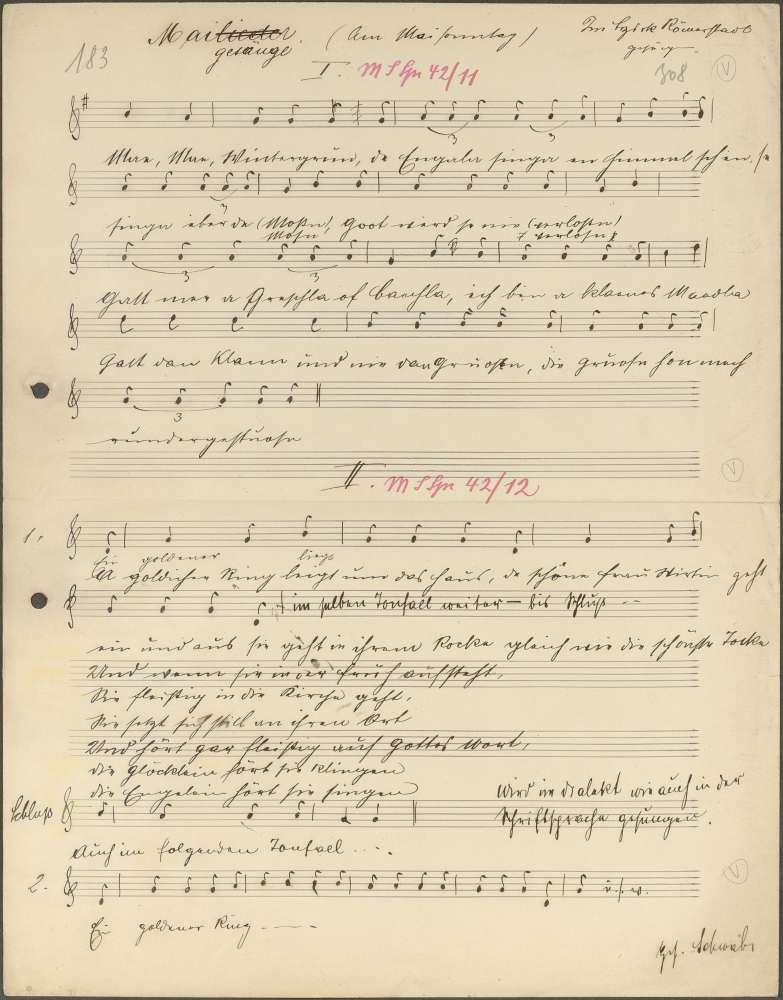 183
Mailieder. (Am Maisonntag) Im Bezirk Römerstadt
gesänge gesungen.
I. M S Gn 42/11 308 V
Mae, Mae, Wintergrün, de Engala singa en Himmel schien, se
singa eber de (Moßn), Goot werd se nie (verloßn)
Mosn verlosn
Gatt mer a Greschla of Baechla, ich ben a klaenes Maadla
Gatt dan Klann und nie dan Gruoßn, die Gruosn hon mech
rundergestuosn
V
II. M S Gn 42/12
1.
Ein goldener liegt
A goldicher Ring leigt um das Haus, de schöne Frau Wirtin geht
im selben Tonfall weiter — bis Schluß - -
ein und aus sie geht in ihrem Rocke gleich wie die schönste Tocke
Und wenn sie in der Früh aufsteht,
Sie fleißig in die Kirche geht,
Sie setzt sich still an ihren Ort
Und hört gar fleißig auf Gottes Wort,
die Glöcklein hört sie klingen
die Engelein hört sie singen
wird im Dialekt wie auch in der
Schriftsprache gesungen.
Schluss
Auch im folgenden Tonfall . . .
2. u. s. w. V
Ein goldener Ring - - -
Schwab